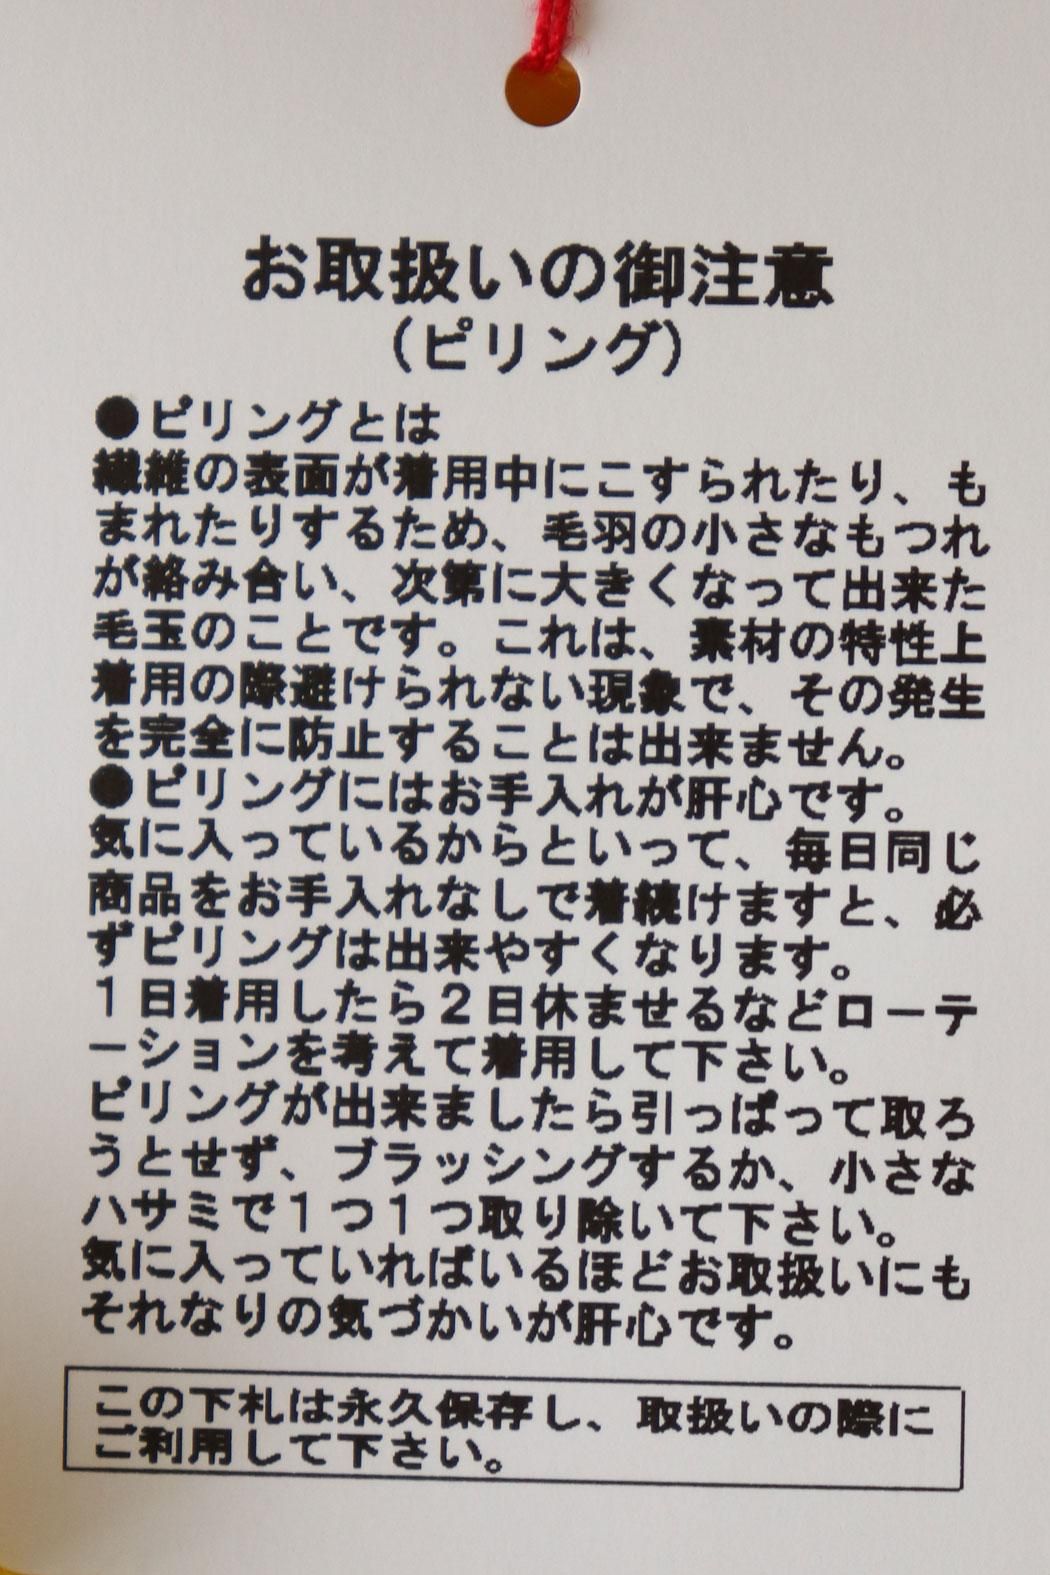 お取扱いの御注意
(ピリング)
●ピリングとは
繊維の表面が着用中にこすられたり、も
まれたりするため、毛羽の小さなもつれ
が絡み合い、次第に大きくなって出来た
毛玉のことです。これは、素材の特性上
着用の際避けられない現象で、その発生
を完全に防止することは出来ません。
●ピリングにはお手入れが肝心です。
気に入っているからといって、毎日同じ
商品をお手入れなしで着続けますと、必
ずピリングは出来やすくなります。
1日着用したら2日休ませるなどローテ
ーションを考えて着用して下さい。
ピリングが出来ましたら引っぱって取ろ
うとせず、ブラッシングするか、小さな
ハサミで1つ1つ取り除いて下さい。
気に入っていればいるほどお取扱いにも
それなりの気づかいが肝心です。
この下札は永久保存し、取扱いの際に
ご利用して下さい。